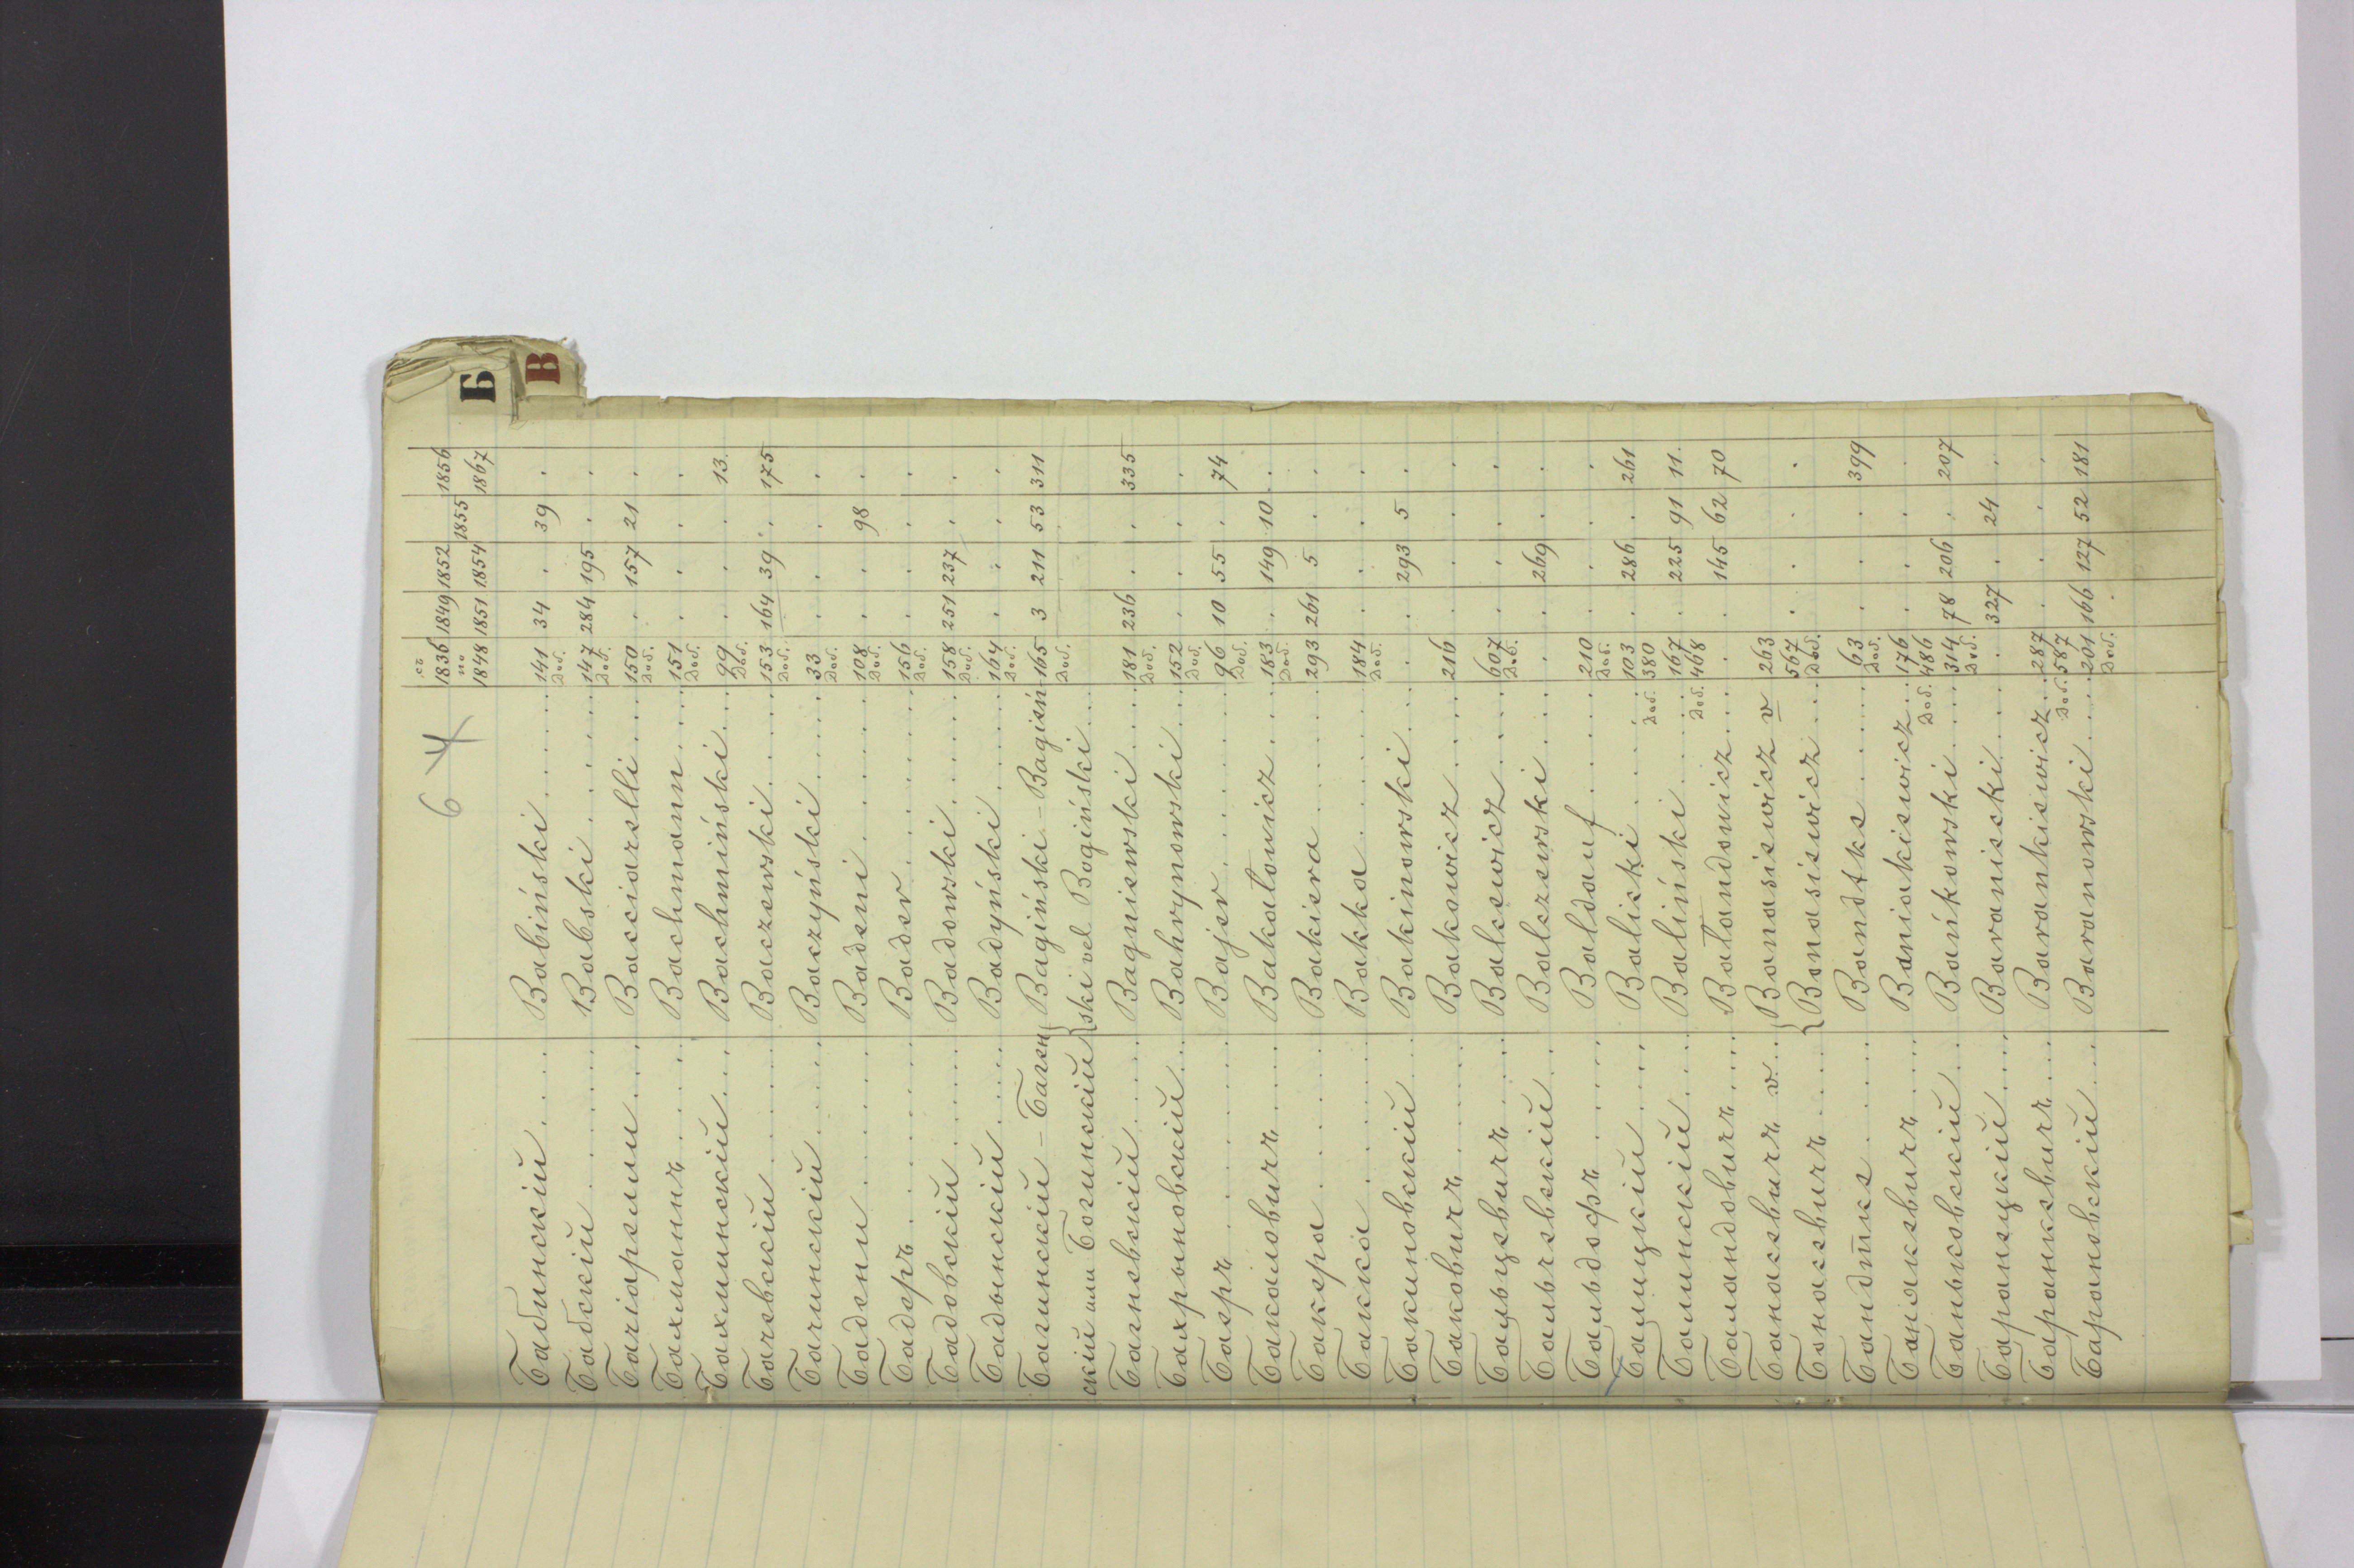 Б
В
6 4
съ 1836 по 1848 1849 1851 1852 1854 1855 1856 1867
Бабинскій . . . . Babiński . . . . 141 доб. 34 . 39 .
Бабскій . . . . Babski . . . . 147 доб. 284 195 . .
Бачіарелли . . Bacciarelli . . . 150 доб. . 157 21 .
Бахманнъ . . . . Bachmann . . . . 151 доб. . . . .
Бахминскій . . Bachmiński . . . 99 доб. . . . 13
Бачевскій . . . . Baczewski . . . . 153 доб. 164 39 . 175
Бачинскій . . . . Baczyński . . . . 33 доб. . . . .
Бадени . . . . Badeni . . . . 108 доб. . . 98 .
Бадеръ . . . . Bader . . . . 156 доб. . . . .
Бадовскій . . . . Badowski . . . . 158 доб. 251 237 . .
Бадынскій . . . . Badyński . . . . 164 доб. . . . .
Багинскій - Баген Bagiński - Bagień- 165 доб. 3 211 53 311
скій или Богинскій ski vel Bogiński . .
Багневскій . . . . Bagniewski . . . . 181 доб. 236 . . 335
Бахрыновскій . . Bahrynowski . . 152 доб. . . . .
Баеръ . . . . Bajer . . . . 96 доб. 10 55 . 74
Бакаловичъ . . . . Bakałowicz . . . . 183 доб. . 149 10 .
Бакера . . . . Bakiera . . . . 293 261 5 . .
Бакка . . . . Bakka . . . . 184 доб. . . . .
Бакиновскій . . . Bakinowski . . . . . 293 5 .
Баковичъ . . . . Bakowicz . . . . 216 . . . .
Бальцевичъ . . . . Balcewicz . . . . 607 доб. . . . .
Бальчевскій . . Balczewski . . . . . 269 . .
Бальдофъ . . . . Baldauf . . . . 210 доб. . . . .
Балицкій . . . . Balicki . . . . 103 доб. 380 . 286 . 261
Балинскій . . . . Baliński . . . . 167 доб. 468 . 225 91 11
Баландовичъ . . . . Bałandowicz . . . . . 145 62 70
Банасевичъ v . . Banasiewicz v 263
Бонасевичъ . . . . Bonasiewicz . . . 567 доб. . . . .
Бандтке . . . . Bandtke . . . . 63 доб. . . . 399
Банакевичъ . . . . Baniakiewicz . . 176 доб. 486 . . . .
Баньковскій . . Bańkowski . . . 314 доб. 78 206 . 207
Баранецкій . . . . Baraniecki . . . . 327 . 24 .
Баранкевичъ . . . Barankiewicz . . 287 доб. 587 . . . .
Барановскій . . . Baranowski . . . 201 доб. 166 127 52 181